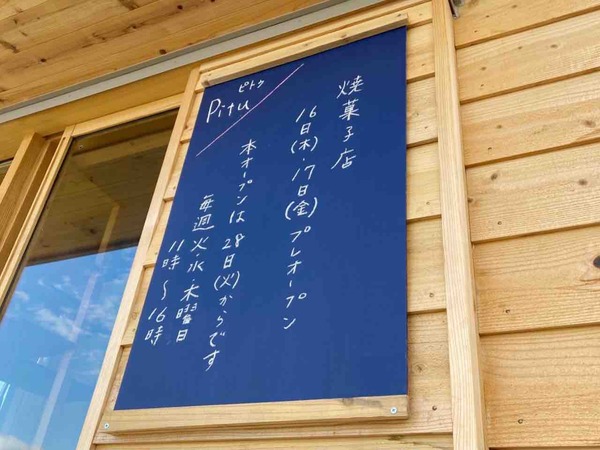 焼菓子店
ピトゥ
Pitu
16日(木)・17日(金) プレオープン
本オープンは 28日(火)からです
毎週 火・水・木曜日
11時〜16時